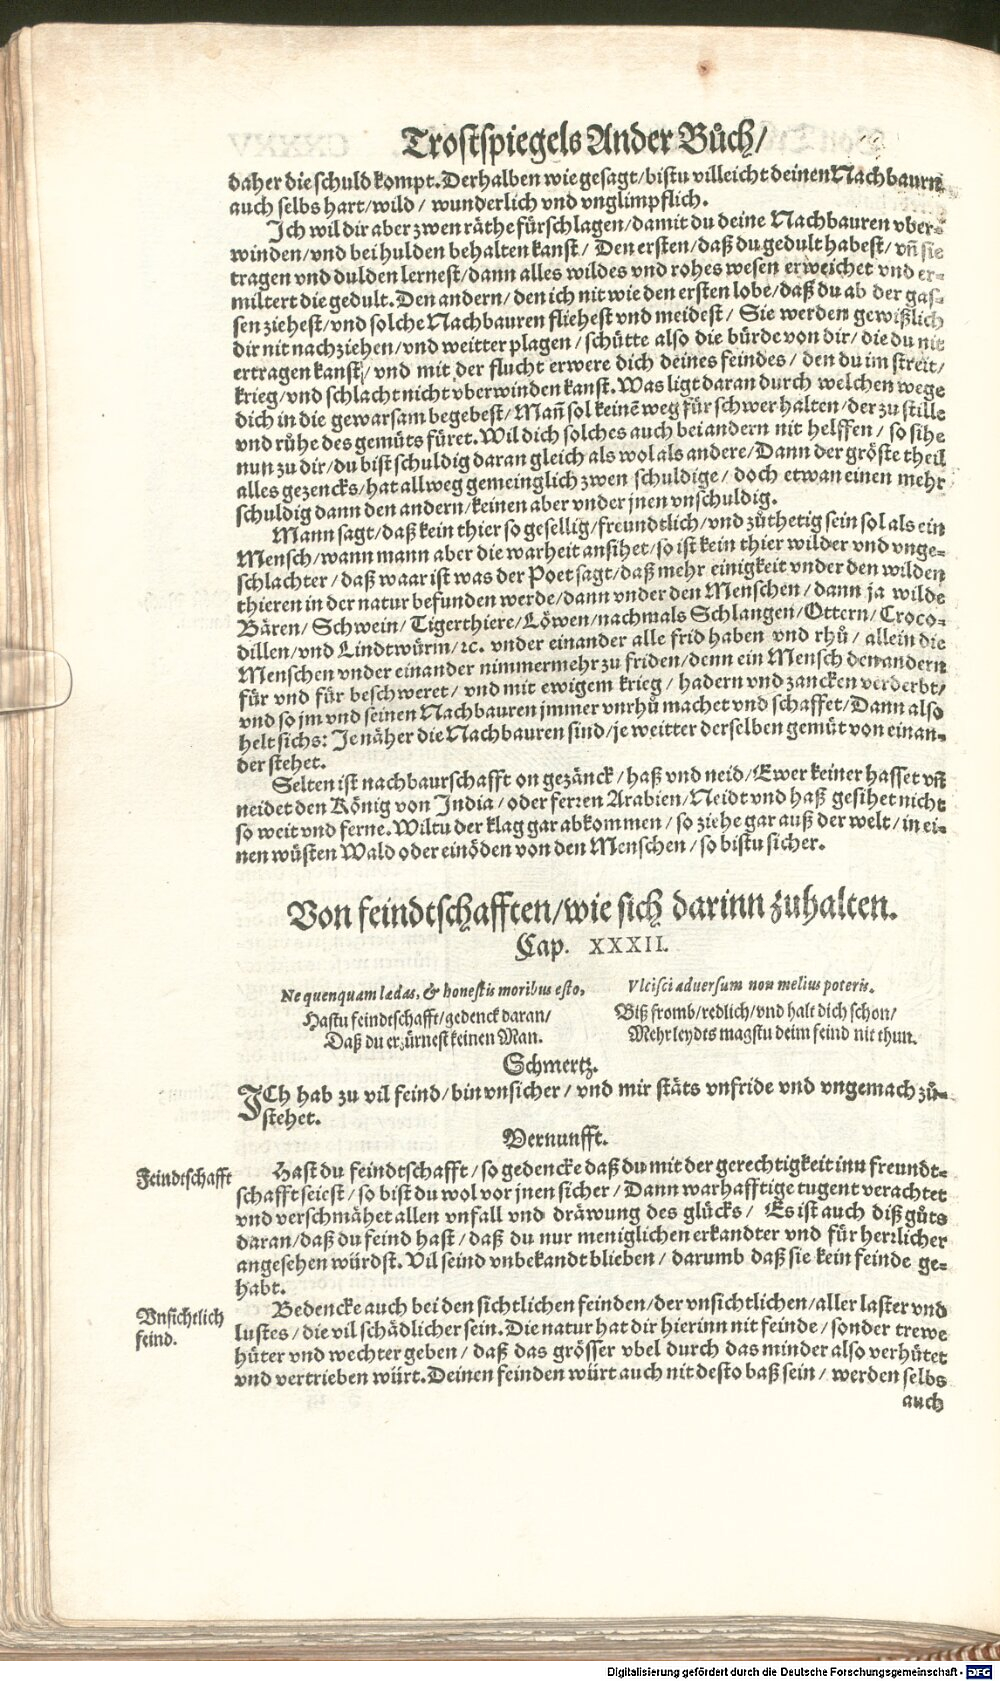 Trostspiegels Ander Bůch/
daher die schuld kompt. Derhalben wie gesagt/ bistu villeicht deinen Nachbaurn
auch selbs hart/ wild/ wunderlich vnd vnglimpflich.
Ich wil dir aber zwen räthe fürschlagen/ damit du deine Nachbauren vber-
winden/ vnd bei hulden behalten kanst/ Den ersten/ daß du gedult habest/ vñ sie
tragen vnd dulden lernest/ dann alles wildes vnd rohes wesen erweichet vnd er-
miltert die gedult. Den andern/ den ich nit wie den ersten lobe/ daß du ab der gas-
sen ziehest/ vnd solche Nachbauren fliehest vnd meidest/ Sie werden gewißlich
dir nit nachziehen/ vnd weitter plagen/ schütte also die bürde von dir/ die du nit
ertragen kanst/ vnd mit der flucht erwere dich deines feindes/ den du im streit/
krieg/ vnd schlacht nicht vberwinden kanst. Was ligt daran durch welchen wege
dich in die gewarsam begebest/ Mañ sol keinẽ weg für schwer halten/ der zu stille
vnd růhe des gemüts füret. Wil dich solches auch bei andern nit helffen/ so sihe
nun zu dir/ du bist schuldig daran gleich als wol als andere/ Dann der gröste theil
alles gezencks/ hat allweg gemeinglich zwen schuldige/ doch etwan einen mehr
schuldig dann den andern/ keinen aber vnder jnen vnschuldig.
Mann sagt/ daß kein thier so gesellig/ freundtlich/ vnd zůthetig sein sol als ein
Mensch/ wann mann aber die warheit ansihet/ so ist kein thier wilder vnd vnge-
schlachter/ daß waar ist was der Poet sagt/ daß mehr einigkeit vnder den wilden
thieren in der natur befunden werde/ dann vnder den Menschen/ dann ja wilde
Bären/ Schwein/ Tigerthiere/ Löwen/ nachmals Schlangen/ Ottern/ Croco-
dillen/ vnd Lindtwürm/ ꝛc. vnder einander alle frid haben vnd rhů/ allein die
Menschen vnder einander nimmermehr zu friden/ denn ein Mensch den andern
für vnd für beschweret/ vnd mit ewigem krieg/ hadern vnd zancken verderbt/
vnd so jm vnd seinen Nachbauren jmmer vnrhů machet vnd schaffet/ Dann also
helt sichs: Je näher die Nachbauren sind/ je weitter derselben gemüt von einan-
der stehet.
Selten ist nachbaurschafft on gezänck/ haß vnd neid/ Ewer keiner hasset vñ
neidet den König von India/ oder ferren Arabien/ Neidt vnd haß gesihet nicht
so weit vnd ferne. Wiltu der klag gar abkommen/ so ziehe gar auß der welt/ in ei-
nen wüsten Wald oder einöden von den Menschen/ so bistu sicher.
Von feindtschafften/ wie sich darinn zuhalten.
Cap. XXXII.
Ne quenquam lædas, & honestis moribus esto,
Hastu feindtschafft/ gedenck daran/
Daß du erzürnest keinen Man.
Vlcisci aduersum non melius poteris.
Biß fromb/ redlich/ vnd halt dich schon/
Mehr leydts magstu deim feind nit thun.
Schmertz.
ICh hab zu vil feind/ bin vnsicher/ vnd mir stäts vnfride vnd vngemach zů-
stehet.
Vernunfft.
Feindtschafft
Hast du feindtschafft/ so gedencke daß du mit der gerechtigkeit inn freundt-
schafft seiest/ so bist du wol vor jnen sicher/ Dann warhafftige tugent verachtet
vnd verschmähet allen vnfall vnd dräwung des glücks/ Es ist auch diß gůts
daran/ daß du feind hast/ daß du nur meniglichen erkandter vnd für herrlicher
angesehen würdst. Vil seind vnbekandt blieben/ darumb daß sie kein feinde ge-
habt.
Vnsichtlich
feind.
Bedencke auch bei den sichtlichen feinden/ der vnsichtlichen/ aller laster vnd
lustes/ die vil schädlicher sein. Die natur hat dir hierinn nit feinde/ sonder trewe
hüter vnd wechter geben/ daß das grösser vbel durch das minder also verhütet
vnd vertrieben würt. Deinen feinden würt auch nit desto baß sein/ werden selbs
auch
Digitalisierung gefördert durch die Deutsche Forschungsgemeinschaft - DFG